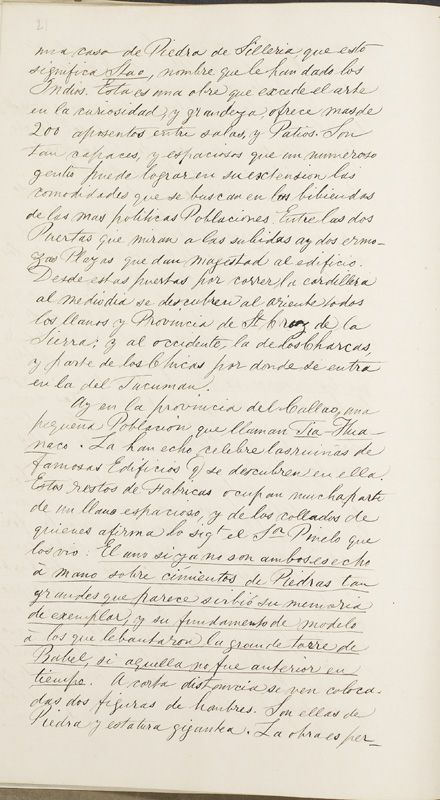 21
una casa de Piedra de Silleria que esto
significa Stao, nombre que le han dado los
Indios. Esta es una obra que excede el arte
en la curiosidad, y grandeza, ofrece mas de
200 aposentos entre salas, y Patios. Son
tan capaces, y espaciosos que un numeroso
gentio puede lograr en su extension las
comodidades que se buscan en las bibiendas
de las mas politicas Poblaciones. Entre las dos
Puertas que miran a las subidas ay dos ermo-
zas Plazas que dan magestad al edificio.
Desde estas puertas por correr la cordillera
al mediodia se descubren al oriente todos
los llanos y Provincia de Sta Cruz de la
Sierra; y al occidente, la de los Charcas,
y parte de los Chicas por donde se entra
en la del Tucuman.
Ay en la provincia del Callao, una
pequeña Poblacion que llaman Tia-Hua-
naco. La han echo celebre las ruinas de
famosas Edificios q se descubren en ella.
Estos restos de Fabricas ocupan mucha parte
de un llano espacioso, y de los collados de
quienes afirma lo sigt el Sor Pinelo que
los vio: El uno si ya no son ambos es echo
à mano sobre cimientos de Piedras tan
grandes que parece sirbió su memoria
de exemplar, y su fundamento de modelo
à los que lebantaron la grande torre de
Babel, si aquella no fue anterior en
tiempo. A corta distancia se ven coloca-
das dos figuras de hombres. Son ellas de
Piedra y estatura gigantea. La obra es per-